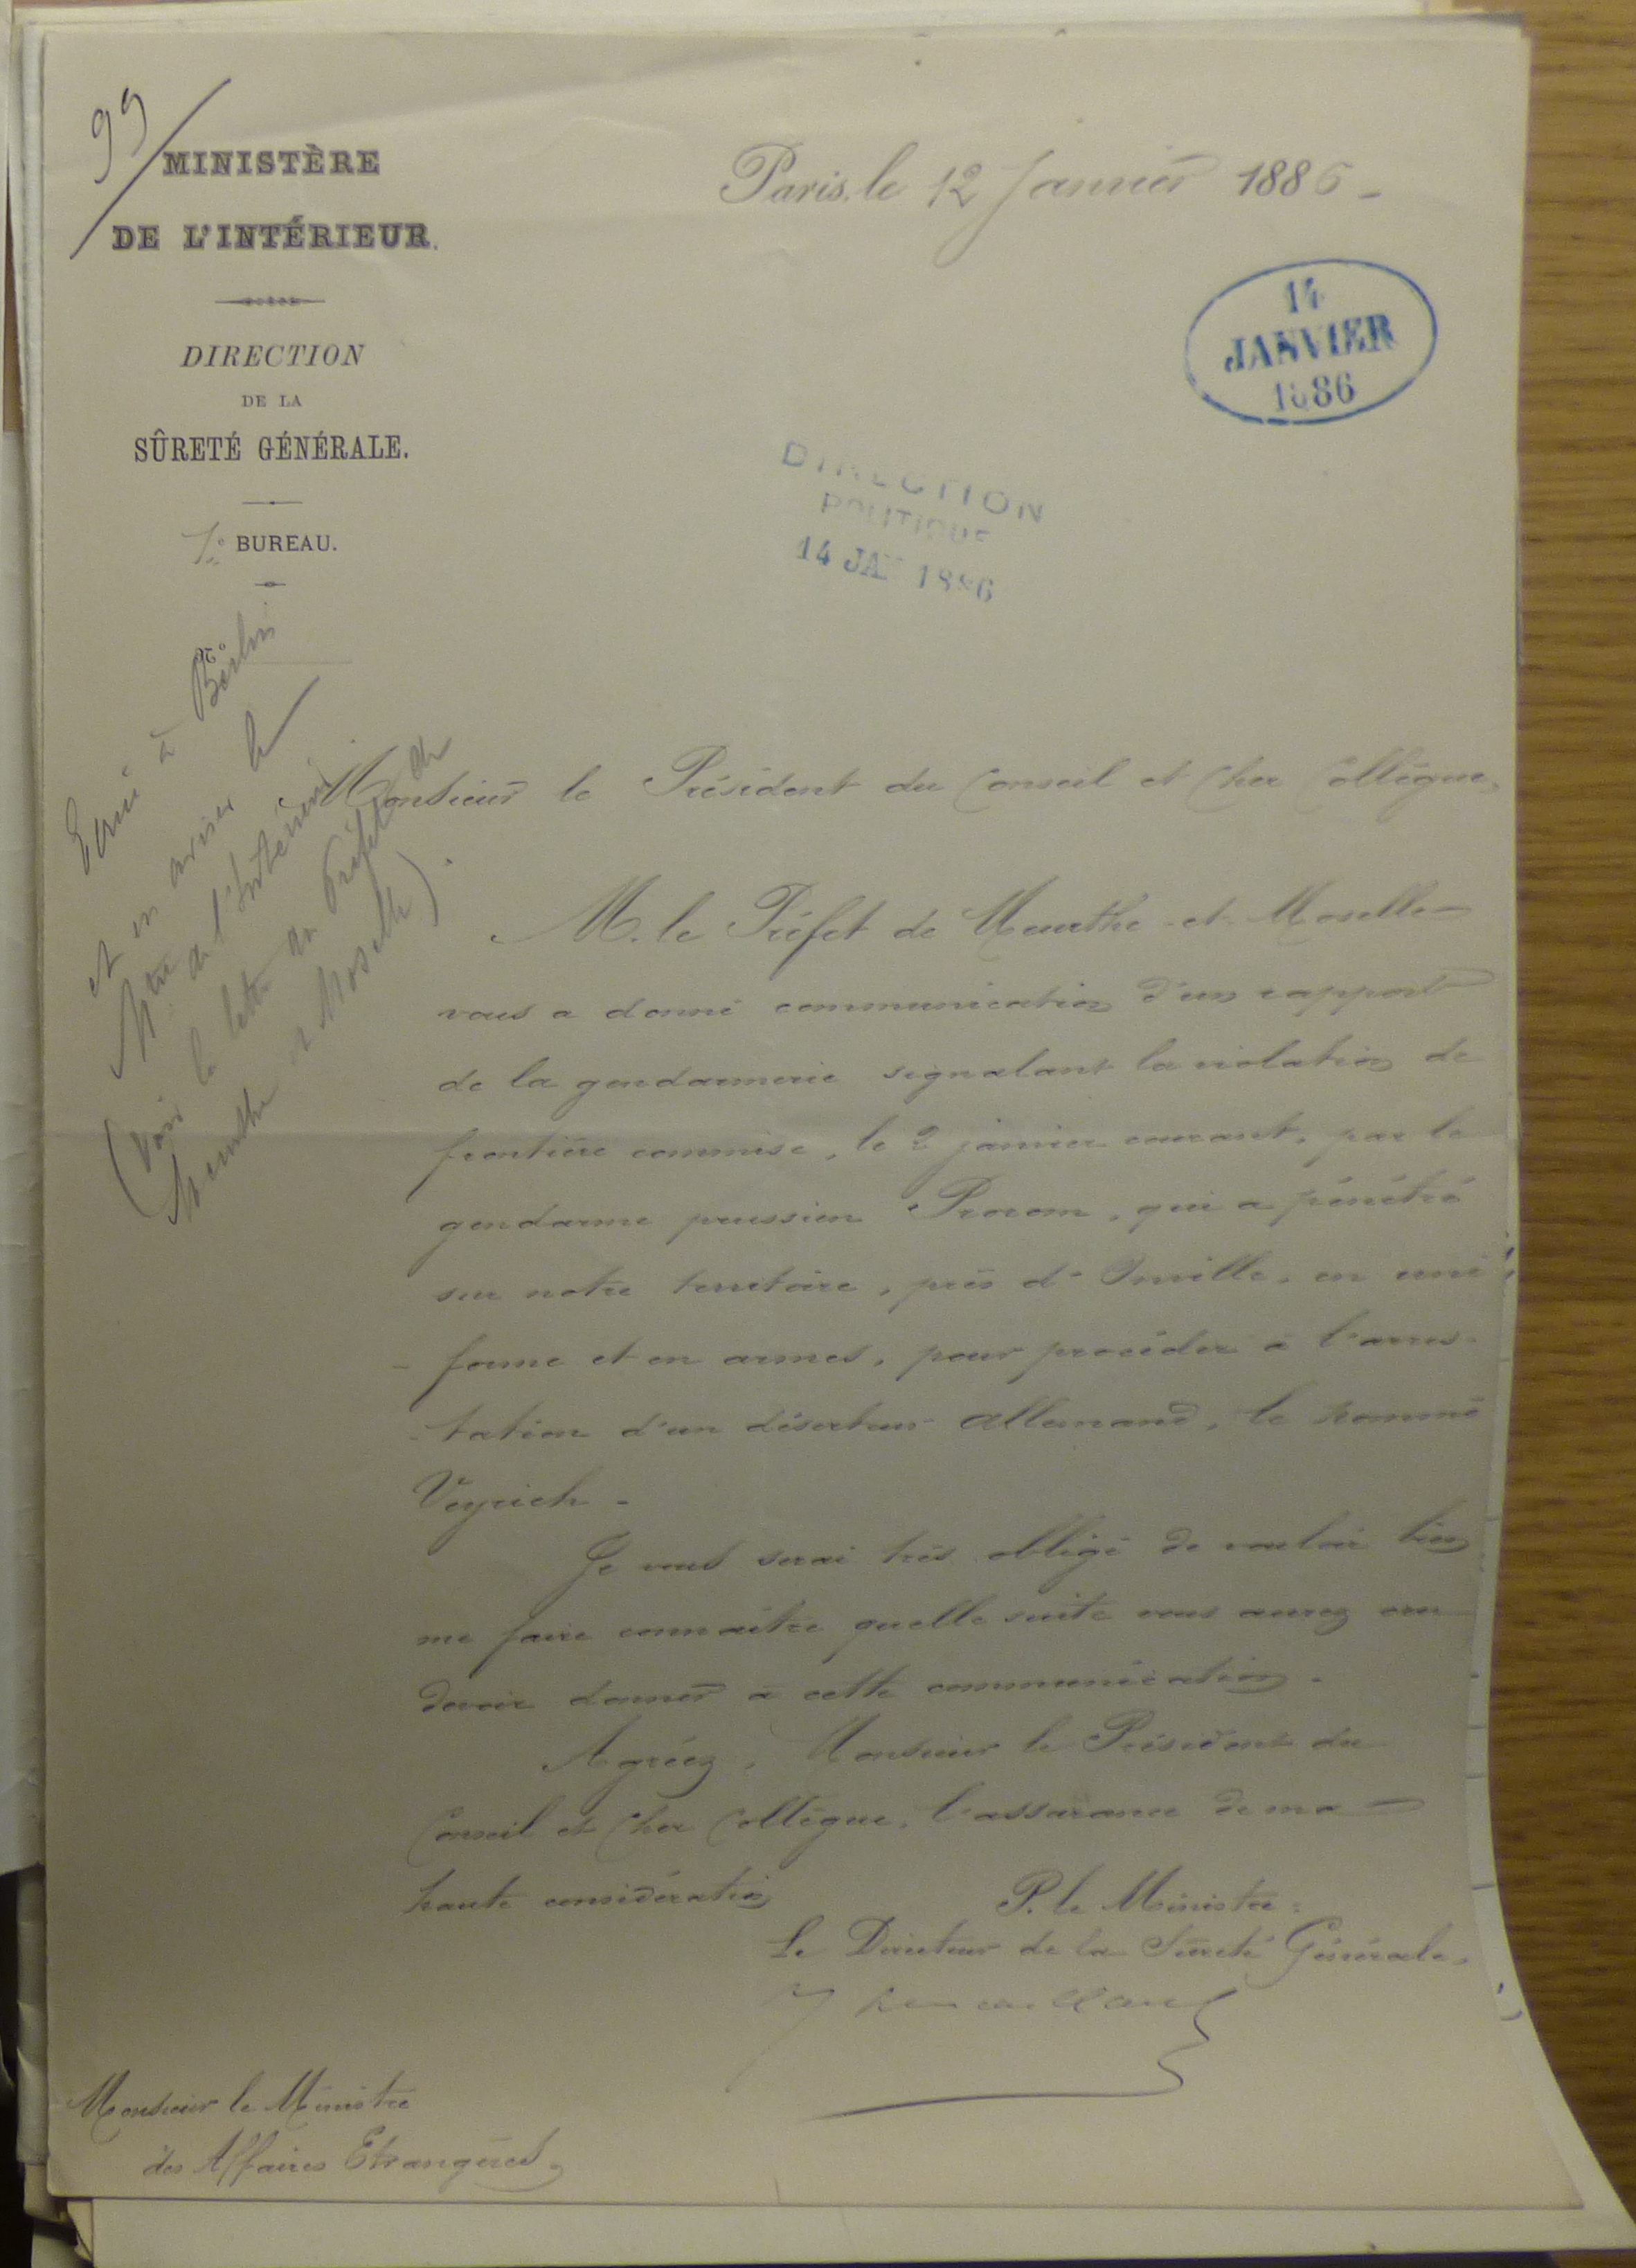 99
MINISTÈRE
DE L'INTÉRIEUR.
DIRECTION
DE LA
SÛRETÉ GÉNÉRALE.
1er BUREAU.
N°
Paris, le 12 Janvier 1886 -
14
JANVIER
1886
DIRECTION
POLITIQUE
14 JAN 1886
Ecrire à Berlin
et en aviser le
Mtre de l'Intérieur
(Voir la lettre du Préfet de
Meurthe et Moselle).
Monsieur le Président du Conseil et Cher Collègue,
M. le Préfet de Meurthe-et-Moselle
vous a donné communication d'un rapport
de la gendarmerie signalant la violation de
frontière commise, le 2 janvier courant, par le
gendarme prussien, qui a pénétré
sur notre territoire, près d'Onville, en uni
- forme et en armes, pour procéder à l'arres-
- tation d'un déserteur allemand, le nommé
Veyrich -
Je vous serai très obligé de vouloir bien
me faire connaître quelle suite vous aurez cru
devoir donner à cette communication.
Agréez, Monsieur le Président du
Conseil et Cher Collègue, l'assurance de ma
haute considération
P. le Ministre :
Le Directeur de la Sûreté Générale,
Monsieur le Ministre
des Affaires Etrangères,